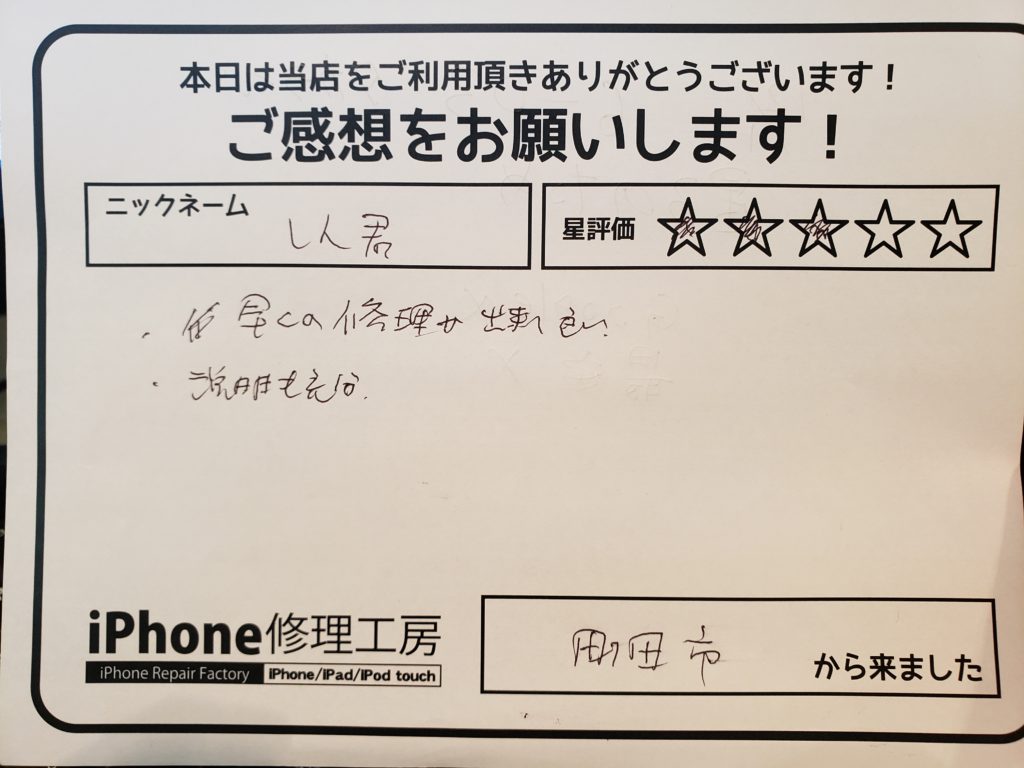 本日は当店をご利用頂きありがとうございます！
ご感想をお願いします！
ニックネーム
しん君
星評価
・ 早くの修理が出来て良い。
・ 説明も充分。
iPhone修理工房
iPhone Repair Factory iPhone/iPad/iPod touch
市 から来ました